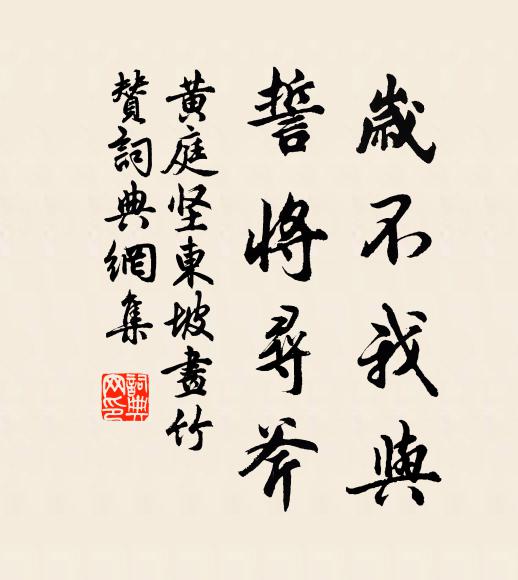 歲不我與
誓將尋斧
黄庭坚東坡畫竹
贊詞典網集
詞典
网印